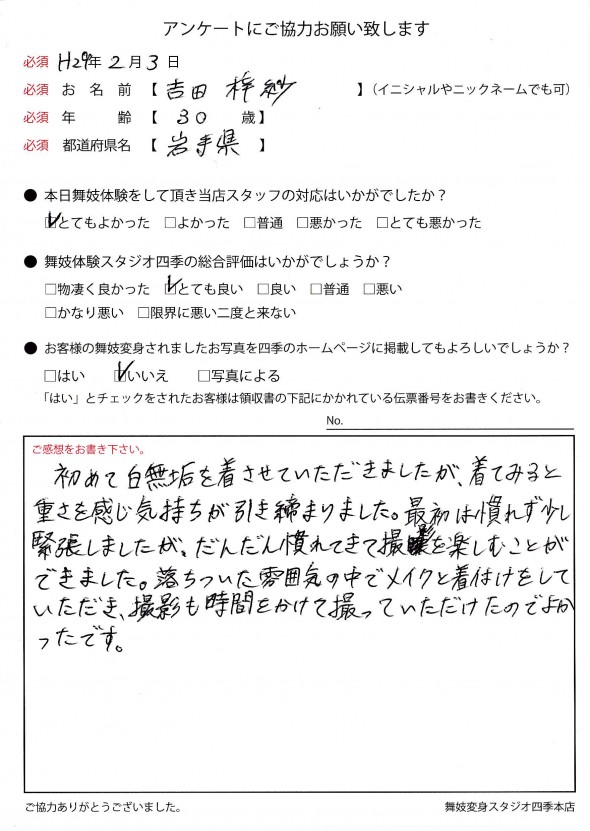 アンケートにご協力お願い致します
必須 H29年 2月 3日
必須 お名前【 吉田 梓紗 】(イニシャルやニックネームでも可)
必須 年齢【 30 歳】
必須 都道府県名【 岩手県 】
● 本日舞妓体験をして頂き当店スタッフの対応はいかがでしたか?
☑とてもよかった □よかった □普通 □悪かった □とても悪かった
● 舞妓体験スタジオ四季の総合評価はいかがでしょうか?
□物凄く良かった ☑とても良い □良い □普通 □悪い
□かなり悪い □限界に悪い二度と来ない
● お客様の舞妓変身されましたお写真を四季のホームページに掲載してもよろしいでしょうか?
□はい ☑いいえ □写真による
「はい」とチェックをされたお客様は領収書の下記にかかれている伝票番号をお書きください。
No.
ご感想をお書き下さい。
初めて白無垢を着させていただきましたが、着てみると
重さを感じ気持ちが引き締まりました。最初は慣れず少し
緊張しましたが、だんだん慣れてきて撮影を楽しむことが
できました。落ちついた雰囲気の中でメイクと着付けをして
いただき、撮影も時間をかけて撮っていただけたのでよか
ったです。
ご協力ありがとうございました。
舞妓変身スタジオ四季本店